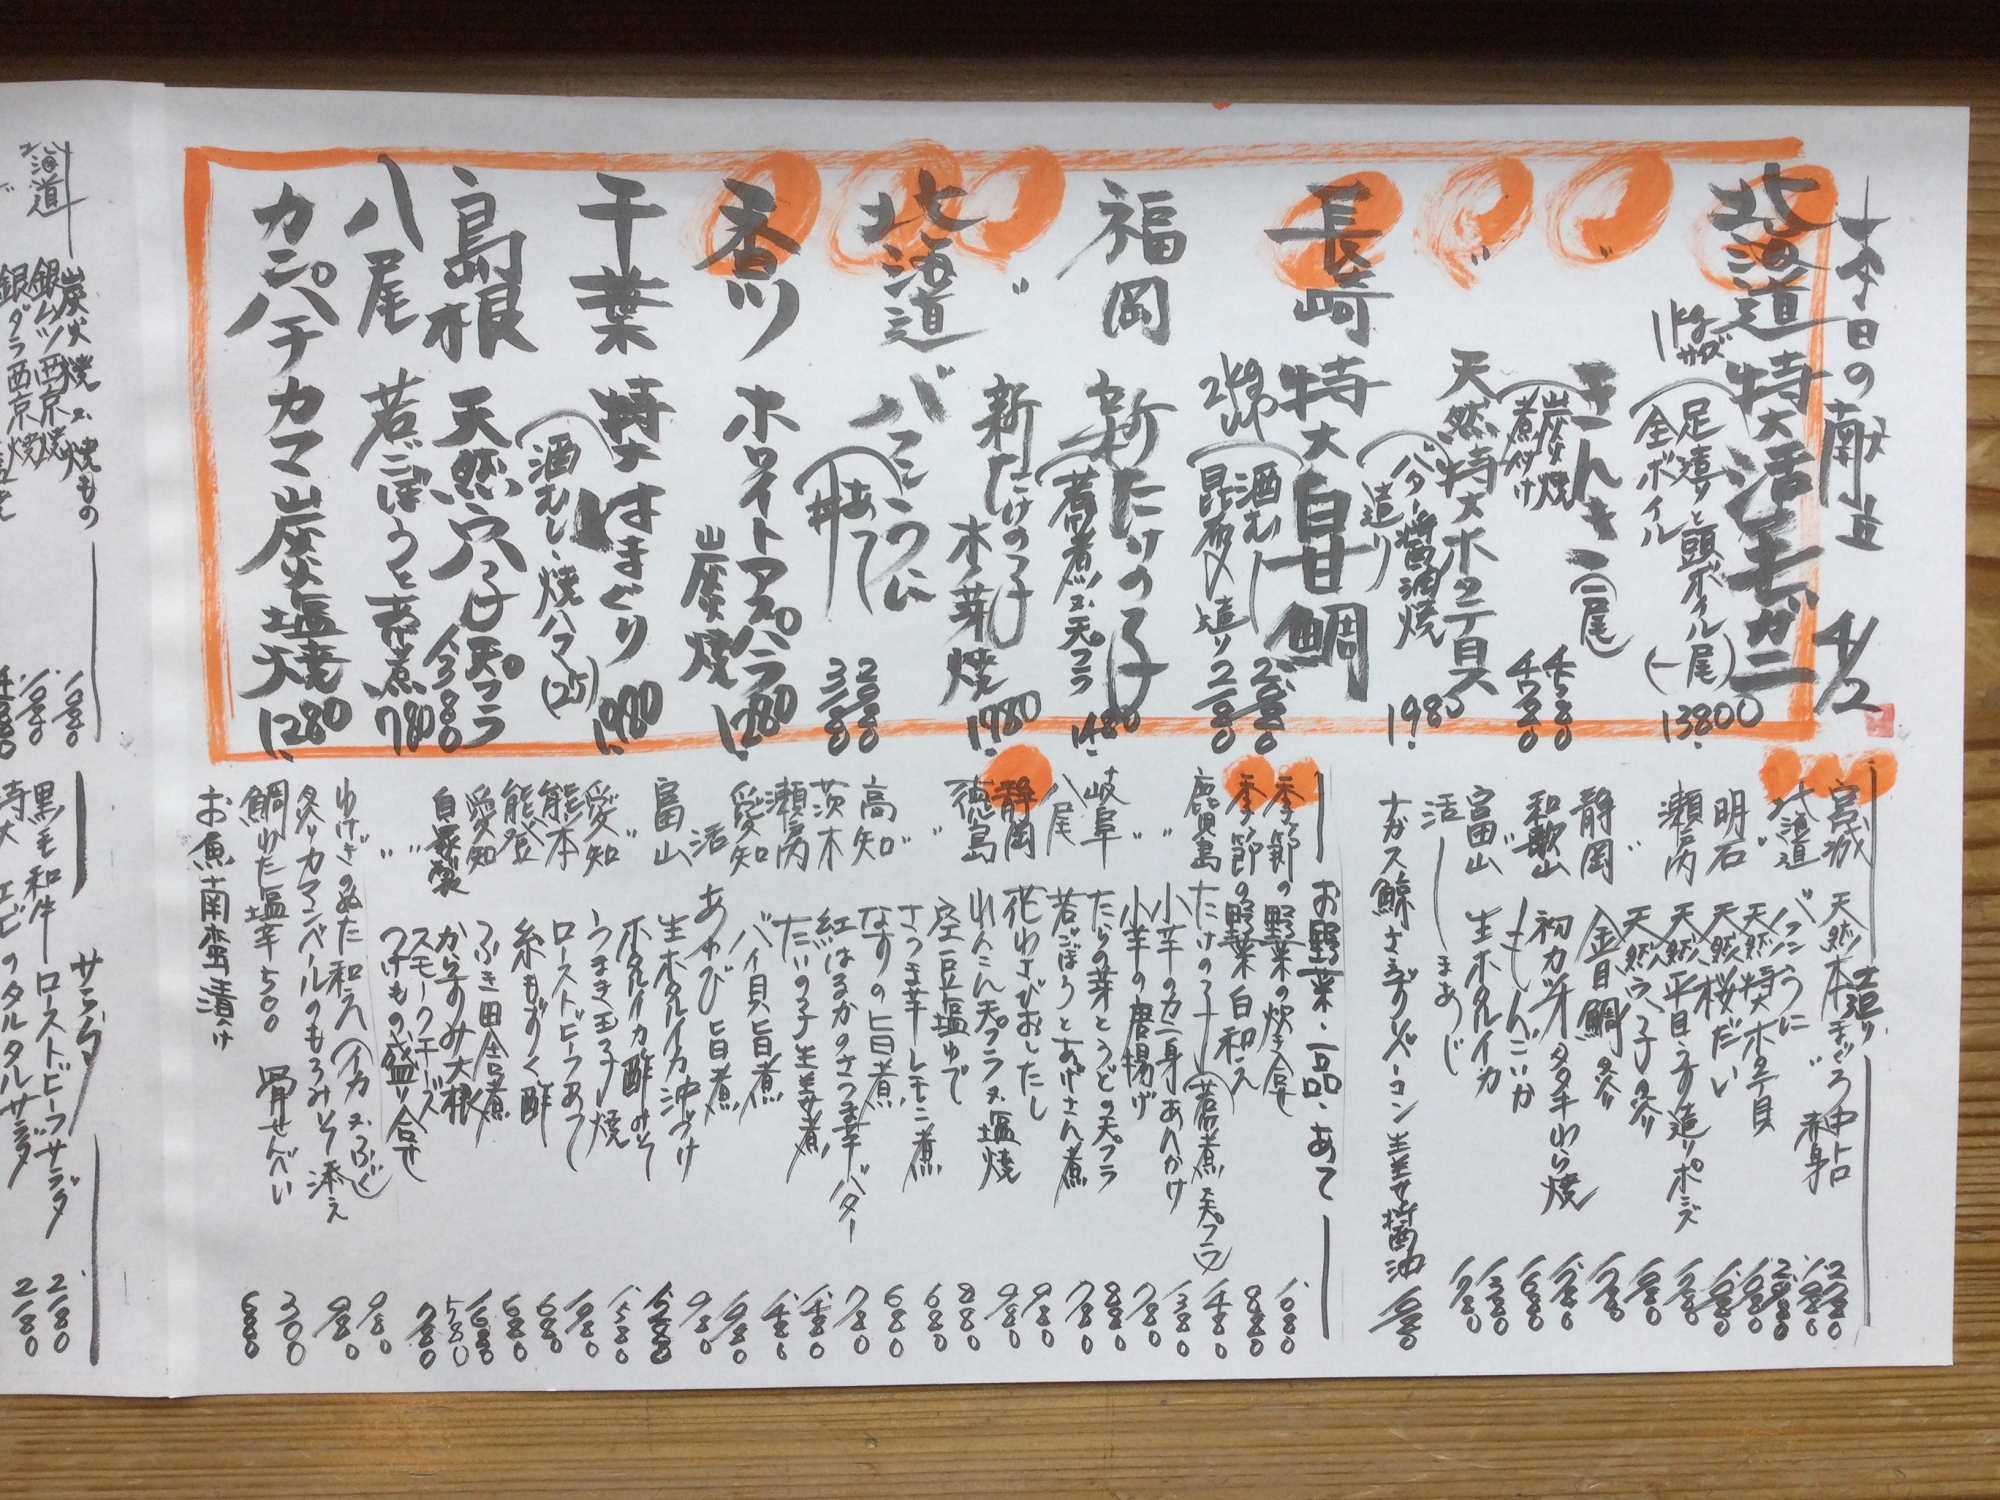 本日の献立 4/2
北海道 特大活毛ガニ
1kgサイズ
足造りと頭ボイル
全ボイル
(一尾) 13800
〃 きんき(一尾)
炭火焼 4580
煮付け 4780
〃 天然特大ホタテ貝
バター醤油焼
造り 1980
長崎 特大白甘鯛
2kgUP
酒むし 2080
昆布〆造り 2180
福岡 新たけのこ
若煮又天プラ 1480
〃 新たけのこ
木の芽焼 1980
北海道 バフンうに
あて 2080
丼 3180
香川 ホワイトアスパラ
炭火焼 1280
千葉 特大はまぐり
酒むし、焼ハマ(2ケ) 1980
島根 天然穴子天プラ 1380
八尾 若ごぼうと志煮 780
カンパチカマ炭火塩焼 1280
造り
宮城 天然本まぐろ中トロ 2780
〃 赤身 1980
北海道 バフンうに 2080
〃 天然特大ホタテ貝
明石 天然桜だい
瀬戸内 天然平目うす造りポンズ
〃 天然穴子炙り
静岡 金目鯛炙り
〃 初カツオタタキわら焼
和歌山 もんごいか
富山 生ホタルイカ
活 まあじ
ナガス鯨さえずりベーコン生姜醤油
お野菜、一品、あて
季節の野菜の炊き合せ 1080
季節の野菜白和え 880
鹿児島 たけのこ(若煮又天プラ) 1480
〃 小芋のカニ身あんかけ 1380
〃 小芋の唐揚げ 780
岐阜 たらの芽とうどの天プラ 880
八尾 若ごぼうとあげさん煮 780
静岡 花わさびおしたし 980
徳島 れんこん天プラ又塩焼 980
〃 空豆塩ゆで 880
〃 さつま芋レモン煮 680
高知 なすの旨煮 680
茨木 紅はるかのさつま芋バター 780
瀬戸内 たいの子生姜煮 1480
愛知 バイ貝旨煮
活 あわび旨煮
富山 生ホタルイカ沖づけ 980
〃 ホタルイカ酢みそ
愛知 うまき玉子焼
熊本 ローストビーフあて
能登 糸もずく酢 680
愛知 ふき田舎煮 680
からすみ大根 1680
自家製 スモークチーズ 580
〃 つけもの盛り合せ 780
〃 ゆげぎのぬた和え(イカ又ふぐ) 980
炙りカマンベールのもろみそ添え 980
鯛わた塩辛 500 骨せんべい 300
お魚南蛮漬け 680
炭火焼又焼もの
銀ムツ西京焼
銀ダラ西京焼
北海道
サラダ
黒毛和牛ローストビーフサラダ 2180
特大エビのタルタルサラダ 2180